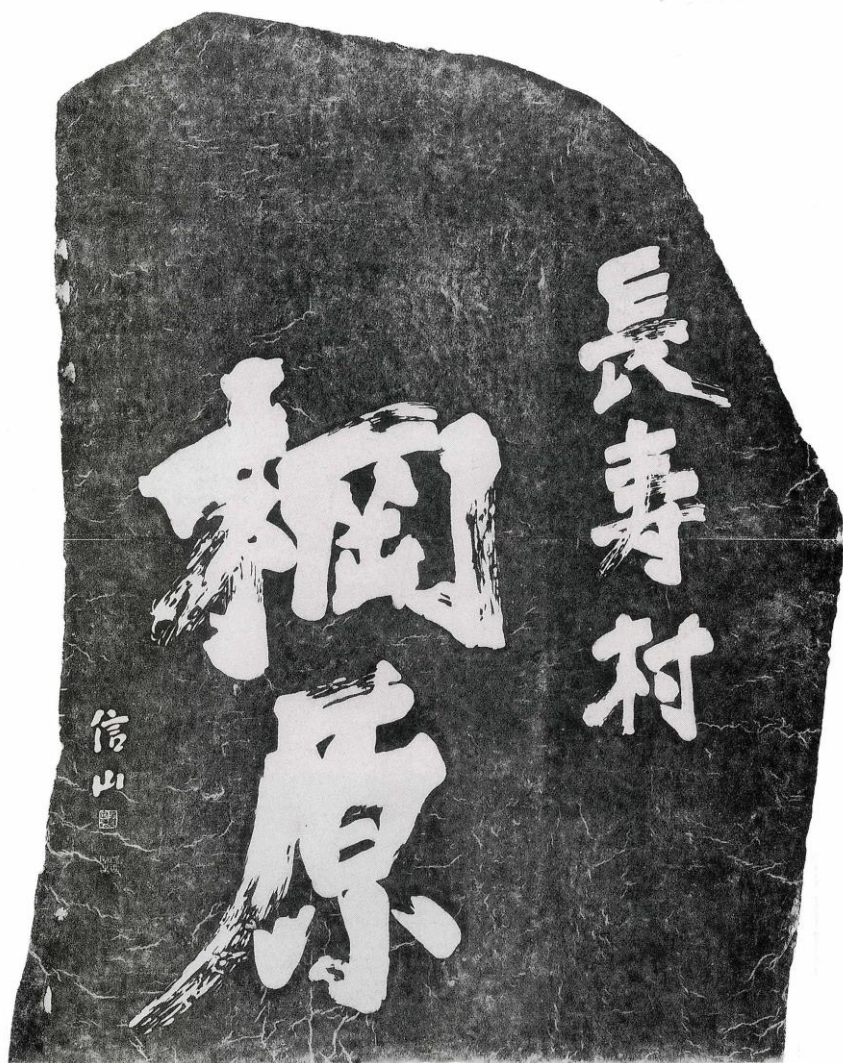 長寿村
棡原
信山